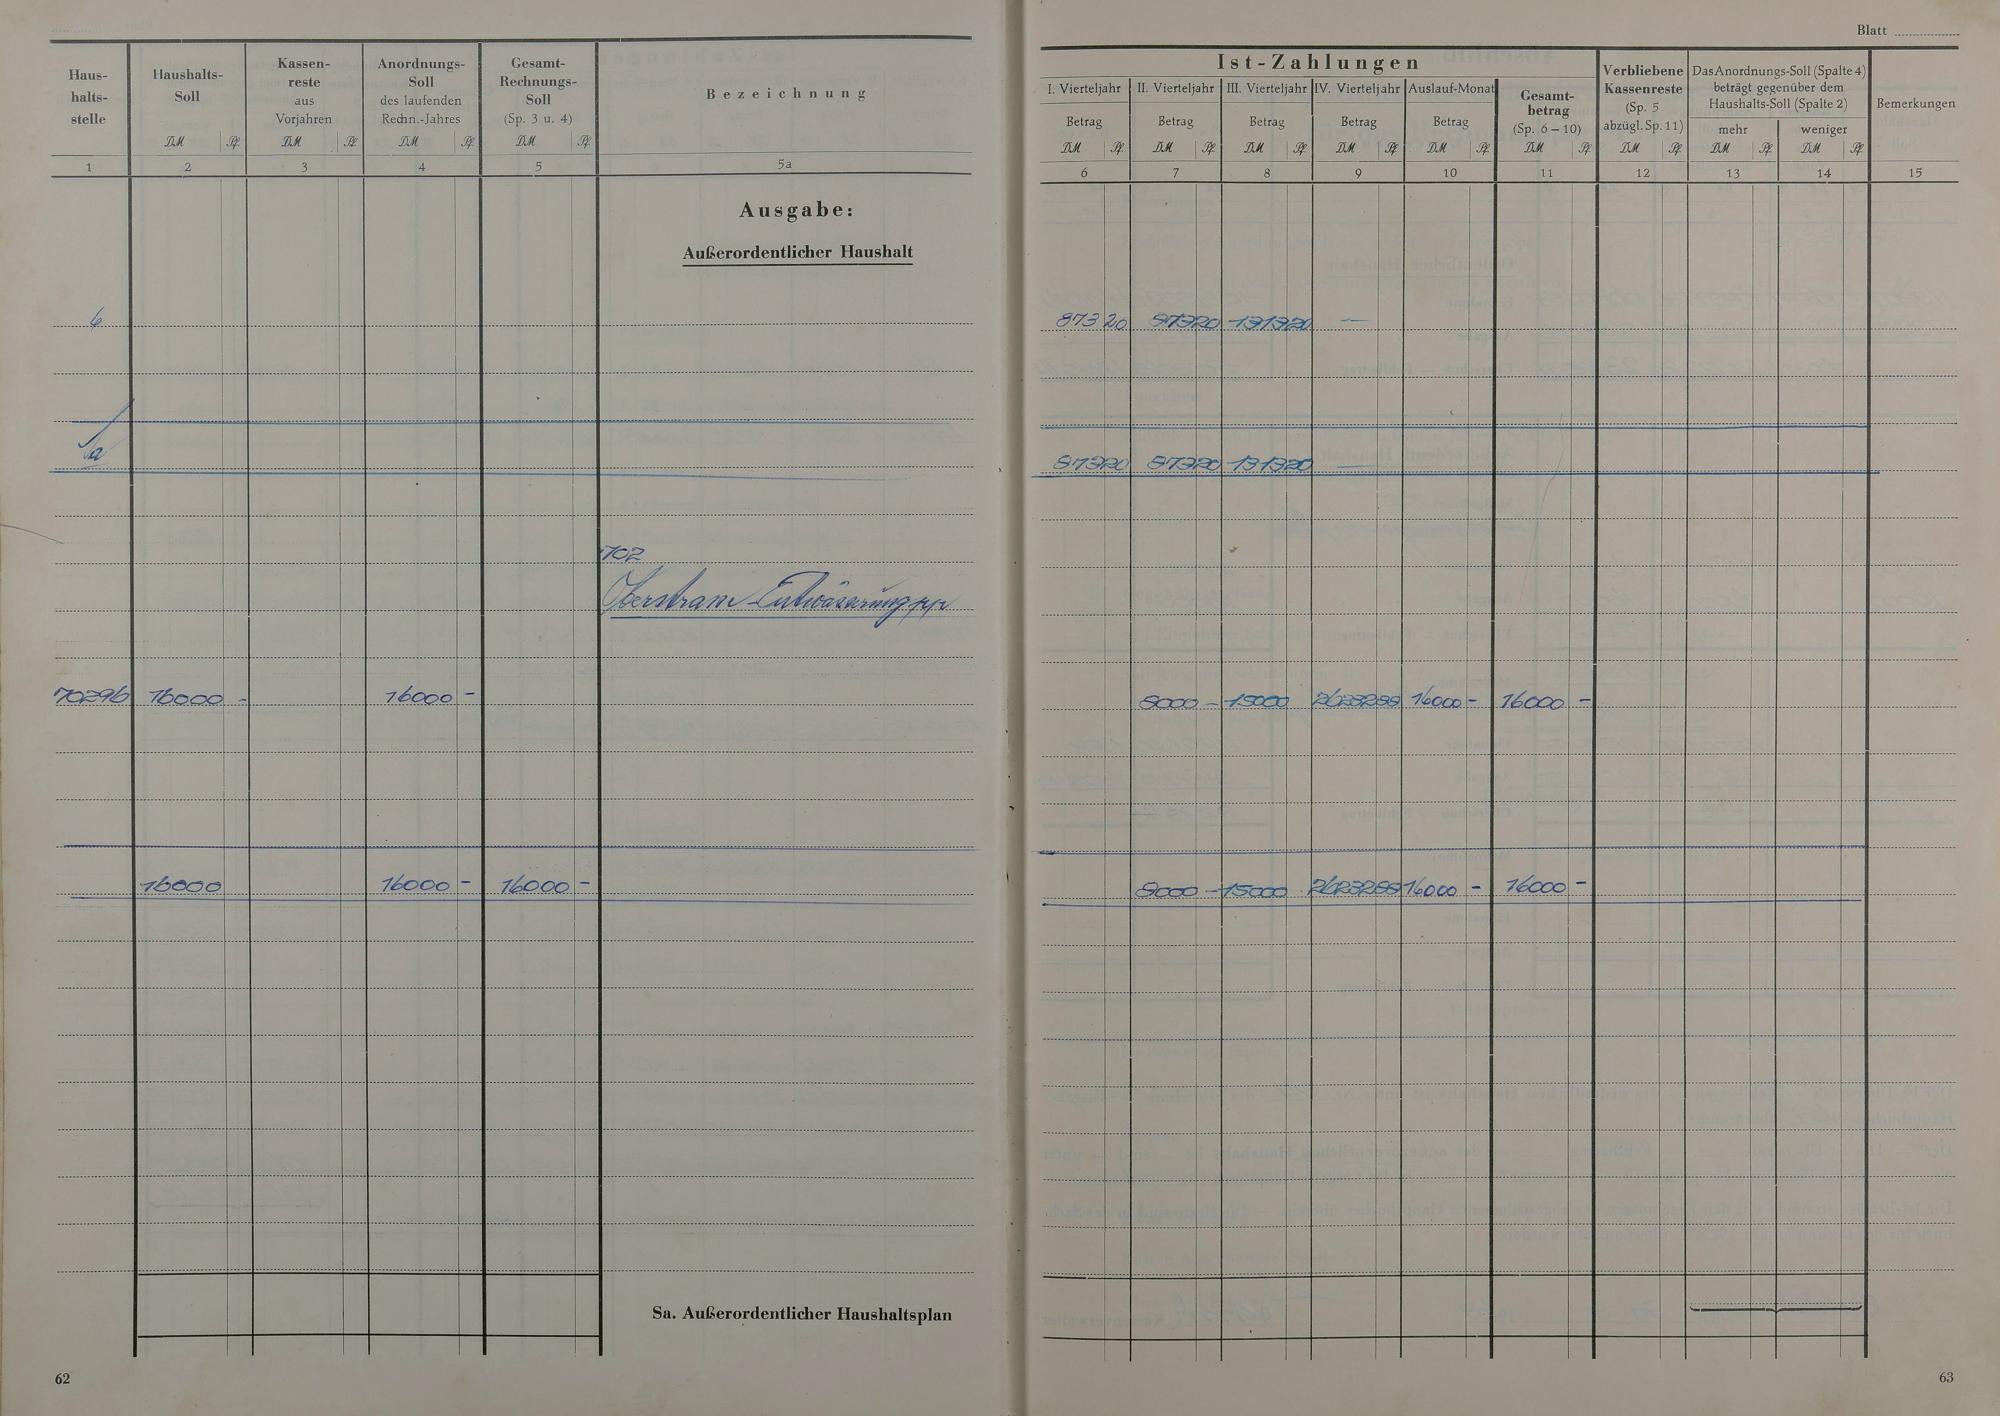 Haus-
halts-
stelle
Haushalts-
Soll
Kassen-
reste
aus
Vorjahren
Anordnungs-
Soll
des laufenden
Rechn.-Jahres
Gesamt-
Rechnungs-
Soll
(Sp. 3 u. 4)
Bezeichnung
DM Pf. DM Pf. DM Pf. DM Pf.
1 2 3 4 5 5a
Ausgabe:
Außerordentlicher Haushalt
6
Sa
702
70296 16000 - 16000 -
16000 16000 - 16000 -
Sa. Außerordentlicher Haushaltsplan
62
Blatt
Ist-Zahlungen
I. Vierteljahr II. Vierteljahr III. Vierteljahr IV. Vierteljahr Auslauf-Monat
Betrag Betrag Betrag Betrag Betrag
Gesamt-
betrag
(Sp. 6 – 10)
Verbliebene
Kassenreste
(Sp. 5
abzügl. Sp. 11)
Das Anordnungs-Soll (Spalte 4)
beträgt gegenüber dem
Haushalts-Soll (Spalte 2)
mehr weniger
Bemerkungen
DM Pf. DM Pf. DM Pf. DM Pf. DM Pf. DM Pf. DM Pf. DM Pf. DM Pf.
6 7 8 9 10 11 12 13 14 15
873 20 873 20 1313 20 —
873 20 873 20 1313 20 —
8000 - 15000 16000 - 16000 -
8000 - 15000 16000 - 16000 -
63